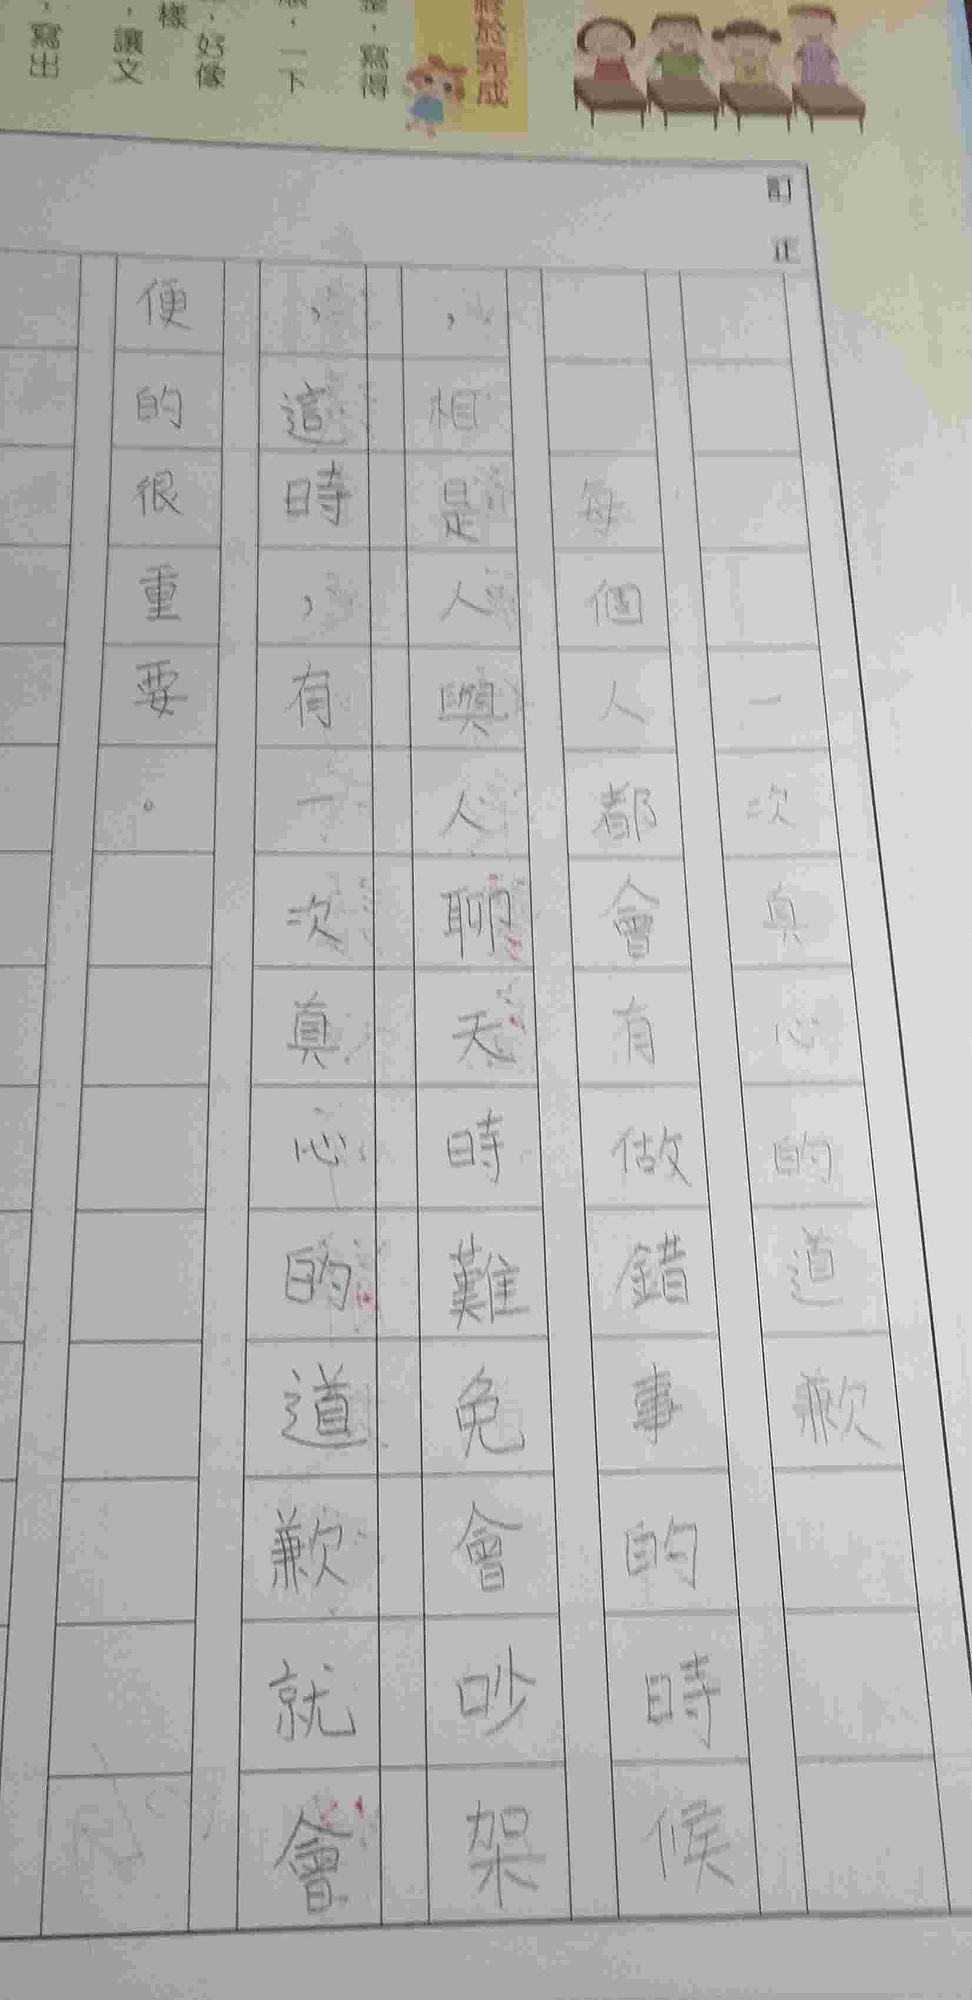 終於完成
整，寫得
順，一下
，好像
樣
，讓文
，寫出
訂正
一次真心的道歉
每個人都會有做錯事的時候
，相是人與人聊天時難免會吵架
，這時，有一次真心的道歉就會
便的很重要。